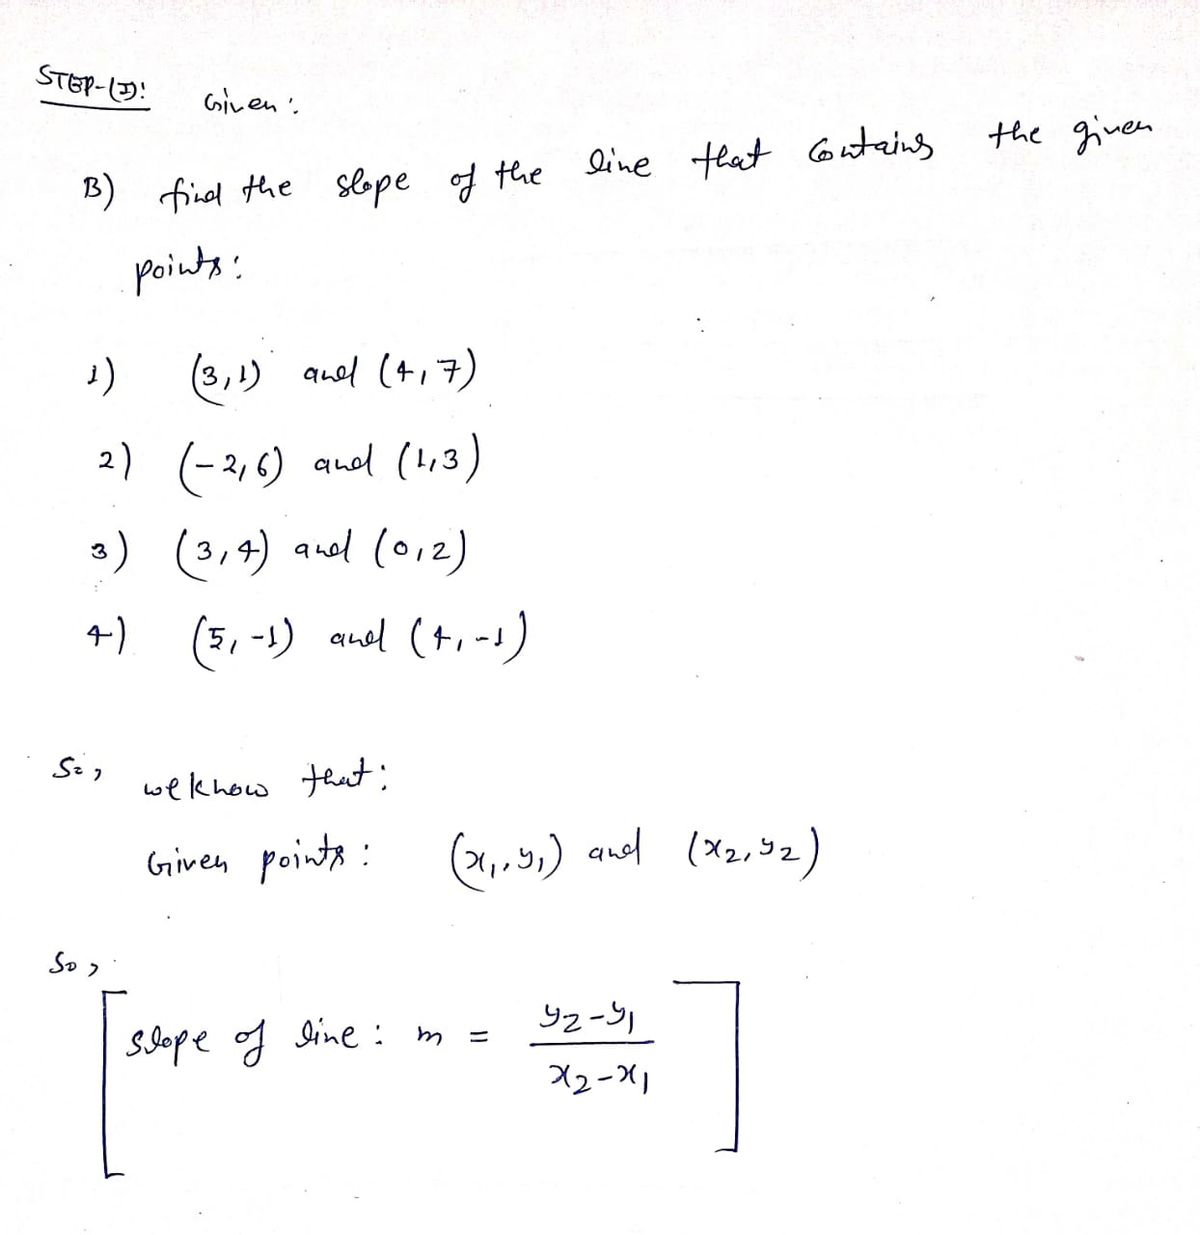 STEP-(I):
Given:
B) find the slope of the line that contains the given
points:
1) (3,1) and (4,7)
2) (-2,6) and (1,3)
3) (3,4) and (0,2)
4) (5,-1) and (4,-1)
So, we know that:
Given points: (x₁, y₁) and (x₂, y₂)
So,
[slope of line: m = (y₂-y₁)/(x₂-x₁)]